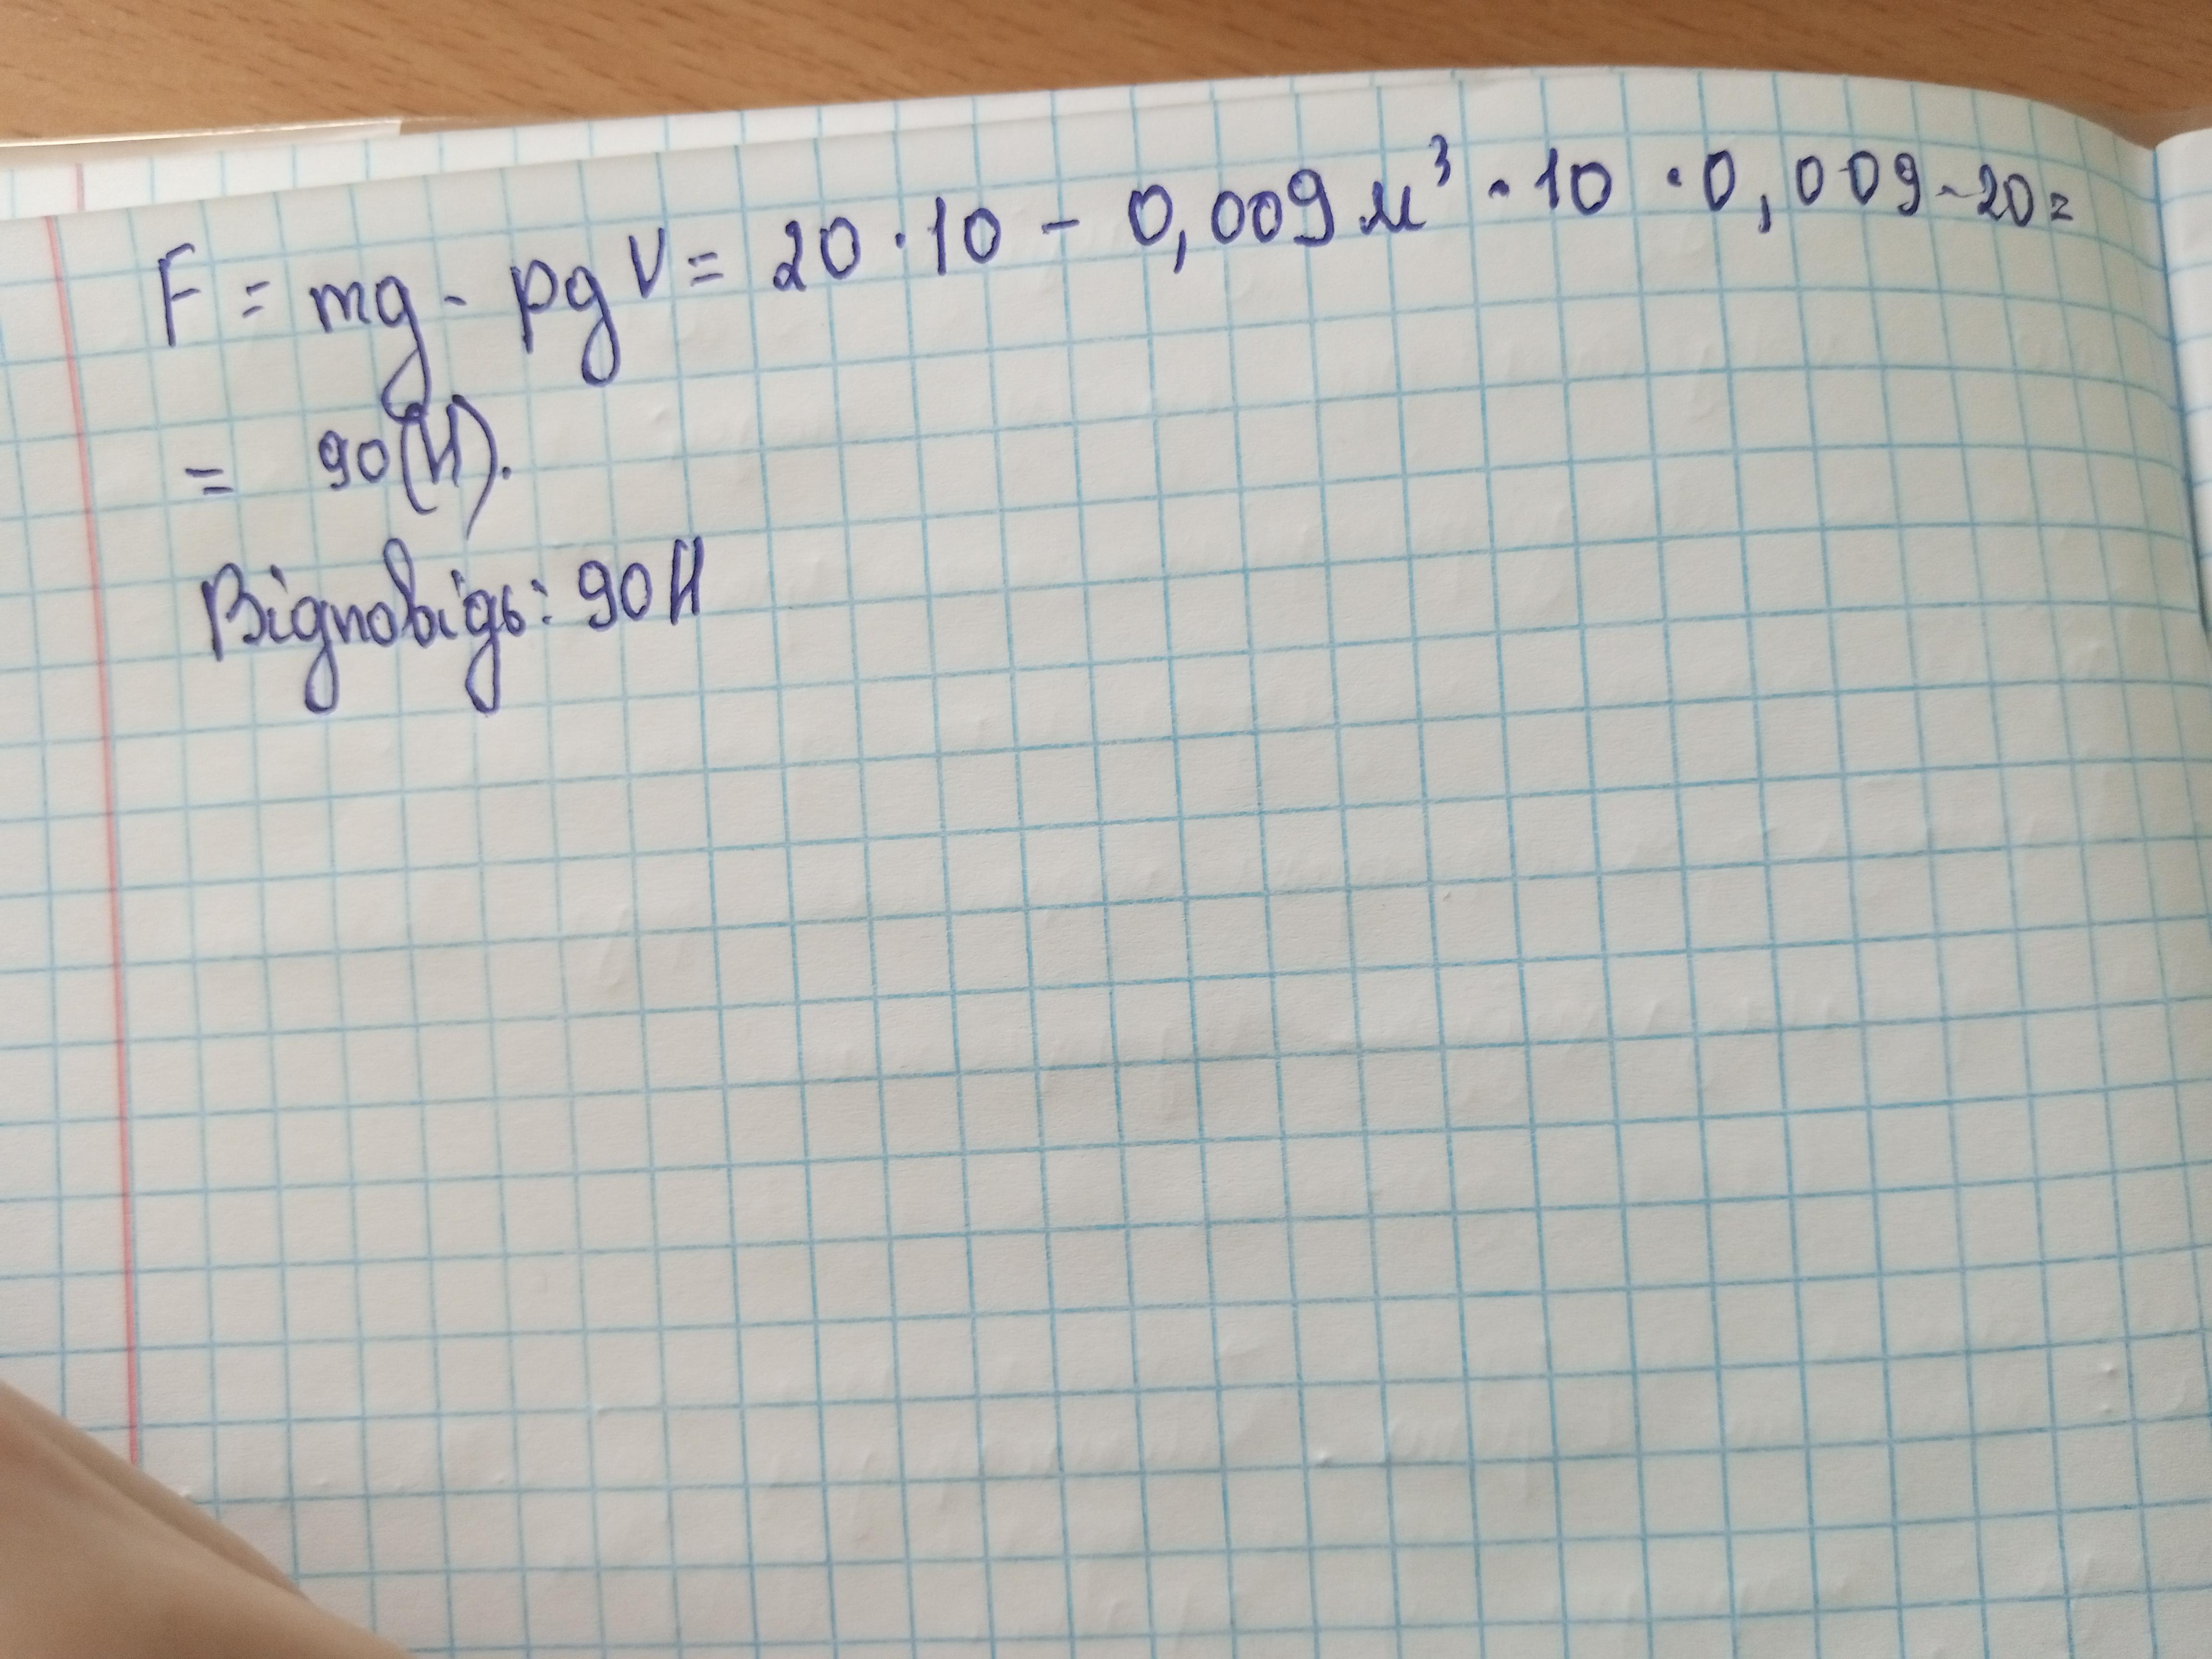 F = mg - pgV = 20 · 10 - 0,009 м³ · 10 · 0,009 - 20 =
= 90(Н).
Відповідь: 90Н